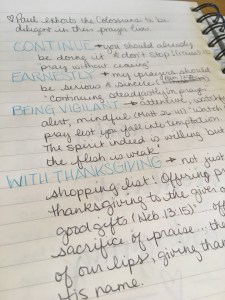 ♡ Paul exhorts the Colossians to be
diligent in their prayer lives
CONTINUE → you should already
be doing it "& don't stop 1 Thess 5:17
pray without ceasing"
EARNESTLY → my prayers should
be serious & sincere
"continuing steadfastly in prayer
BEING VIGILANT → attentive, watchful
alert, mindful (Matt 26:41) "watch
pray lest you fall into temptation
The Spirit indeed is willing but
the flesh is weak"
WITH THANKSGIVING → not just
shopping list! Offering
thanksgiving to the giver of
good gifts (Heb. 13:15) "
sacrifice of praise... the
of our lips, giving than
His name.